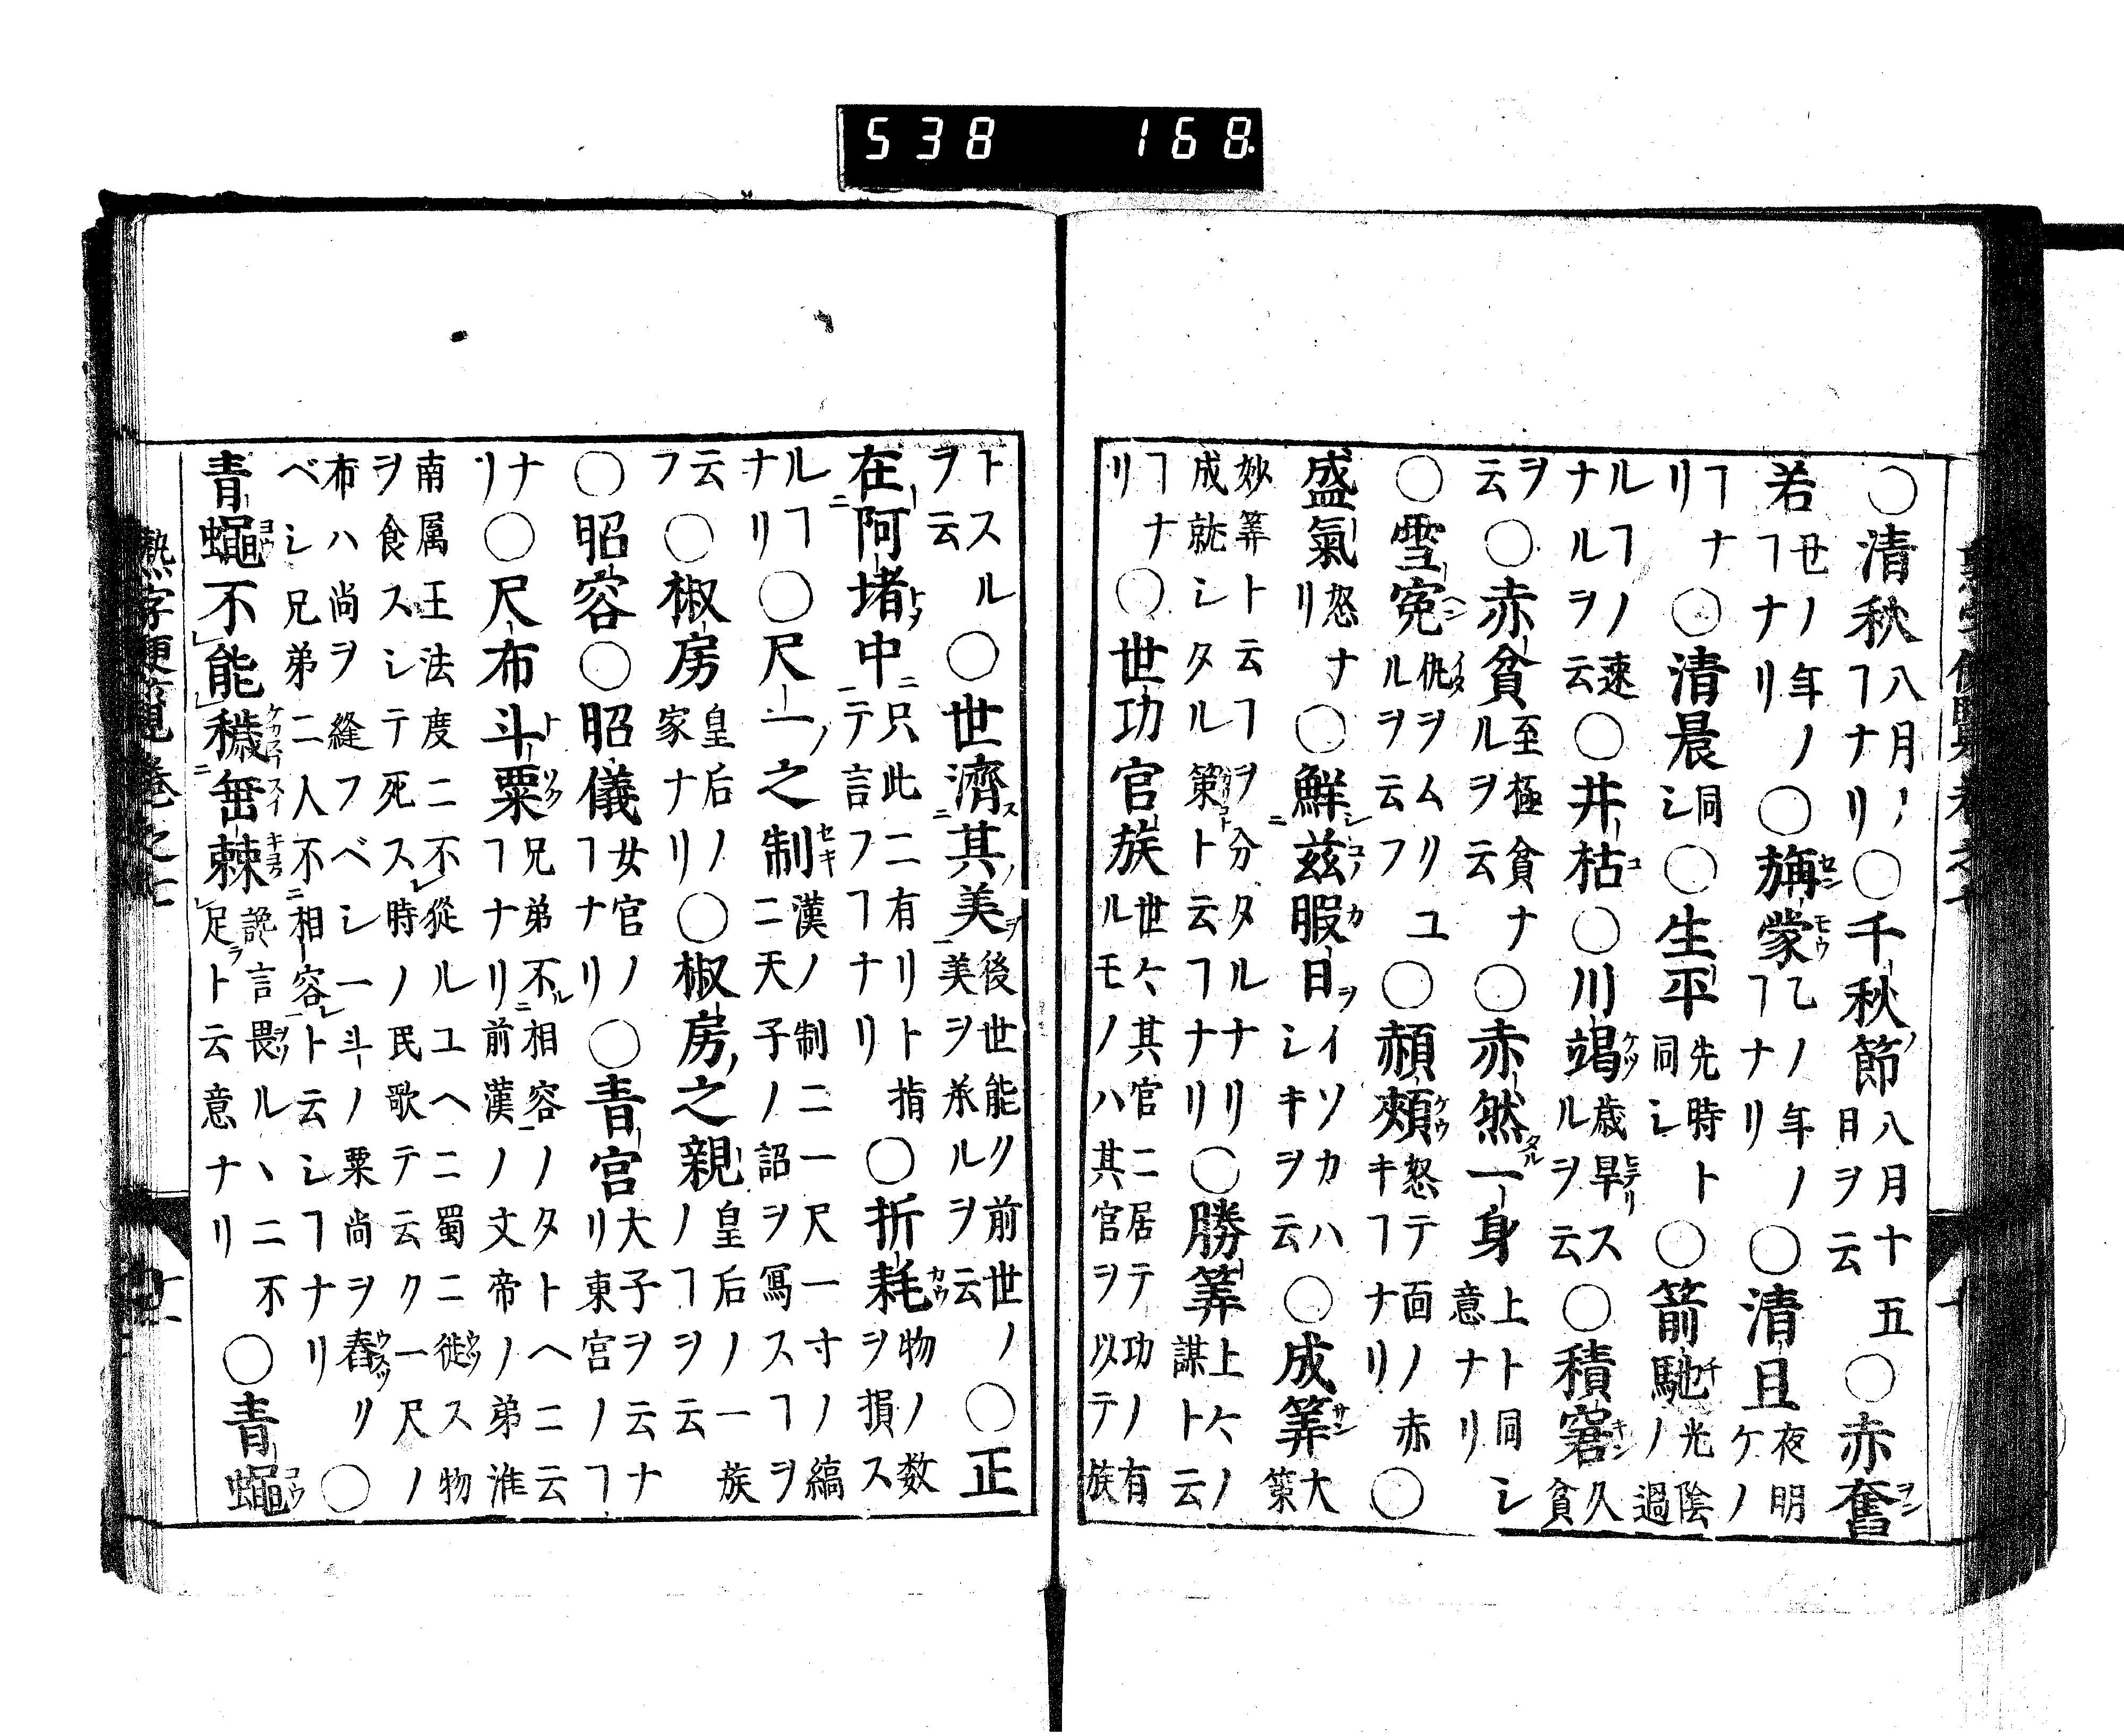 538 168
○清秋八月ノヿナリ○千秋節八月十五日ヲ云○赤奮
若丑ノ年ノヿナリ○旃蒙乙ノ年ノヿナリ○清旦夜明ケノ
ヿナリ○清晨同シ○生平先時ト同シ○箭馳光陰ノ過
ルヿノ速ナルヲ云○井枯○川竭歳旱スルヲ云○積窘久貧
ヲ云○赤貧至極貧ナルヲ云○赤然一身上ト同シ意ナリ
○雪冤仇ヲムリユルヲ云フ○頳頰怒テ面ノ赤キヿナリ○
盛氣怒ナリ○鮮茲暇日イソカハシキヲ云○成筭大策
妙筭ト云ヿヲ分タルナリ成就シタル策ト云ヿナリ○勝筭上ケノ謀ト云
ヿナリ○世功官族世々其官ニ居テ功ノ有ルモノハ其官ヲ以テ族
トスルヲ云○世濟其美後世能ク前世ノ美ヲ承ルヲ云○正
在阿堵中只此ニ有リト指テ言フヿナリ○折耗物ノ数ヲ損ス
ルヿナリ○尺一之制漢ノ制ニ一尺一寸ノ縞ニ天子ノ詔ヲ寫スヿヲ
云フ○椒房皇后ノ家ナリ○椒房之親皇后ノ一族ノヿヲ云
○昭容○昭儀女官ノヿナリ○青宮大子ヲ云ナリ東宮ノヿ
ナリ○尺布斗粟兄弟不相容ノタトヘニ云ヿナリ前漢ノ文帝ノ弟淮
南属王法度ニ不從ルユヘニ蜀ニ徙ス物ヲ食スシテ死ス時ノ民歌テ云ク一尺ノ
布ハ尚ヲ縫フベシ一斗ノ粟尚ヲ舂リベシ兄弟二人不相容ト云シヿナリ○
青蠅不能穢垂棘讒言畏ルヽニ不足ト云意ナリ○青蠅
熟字便覧巻之七